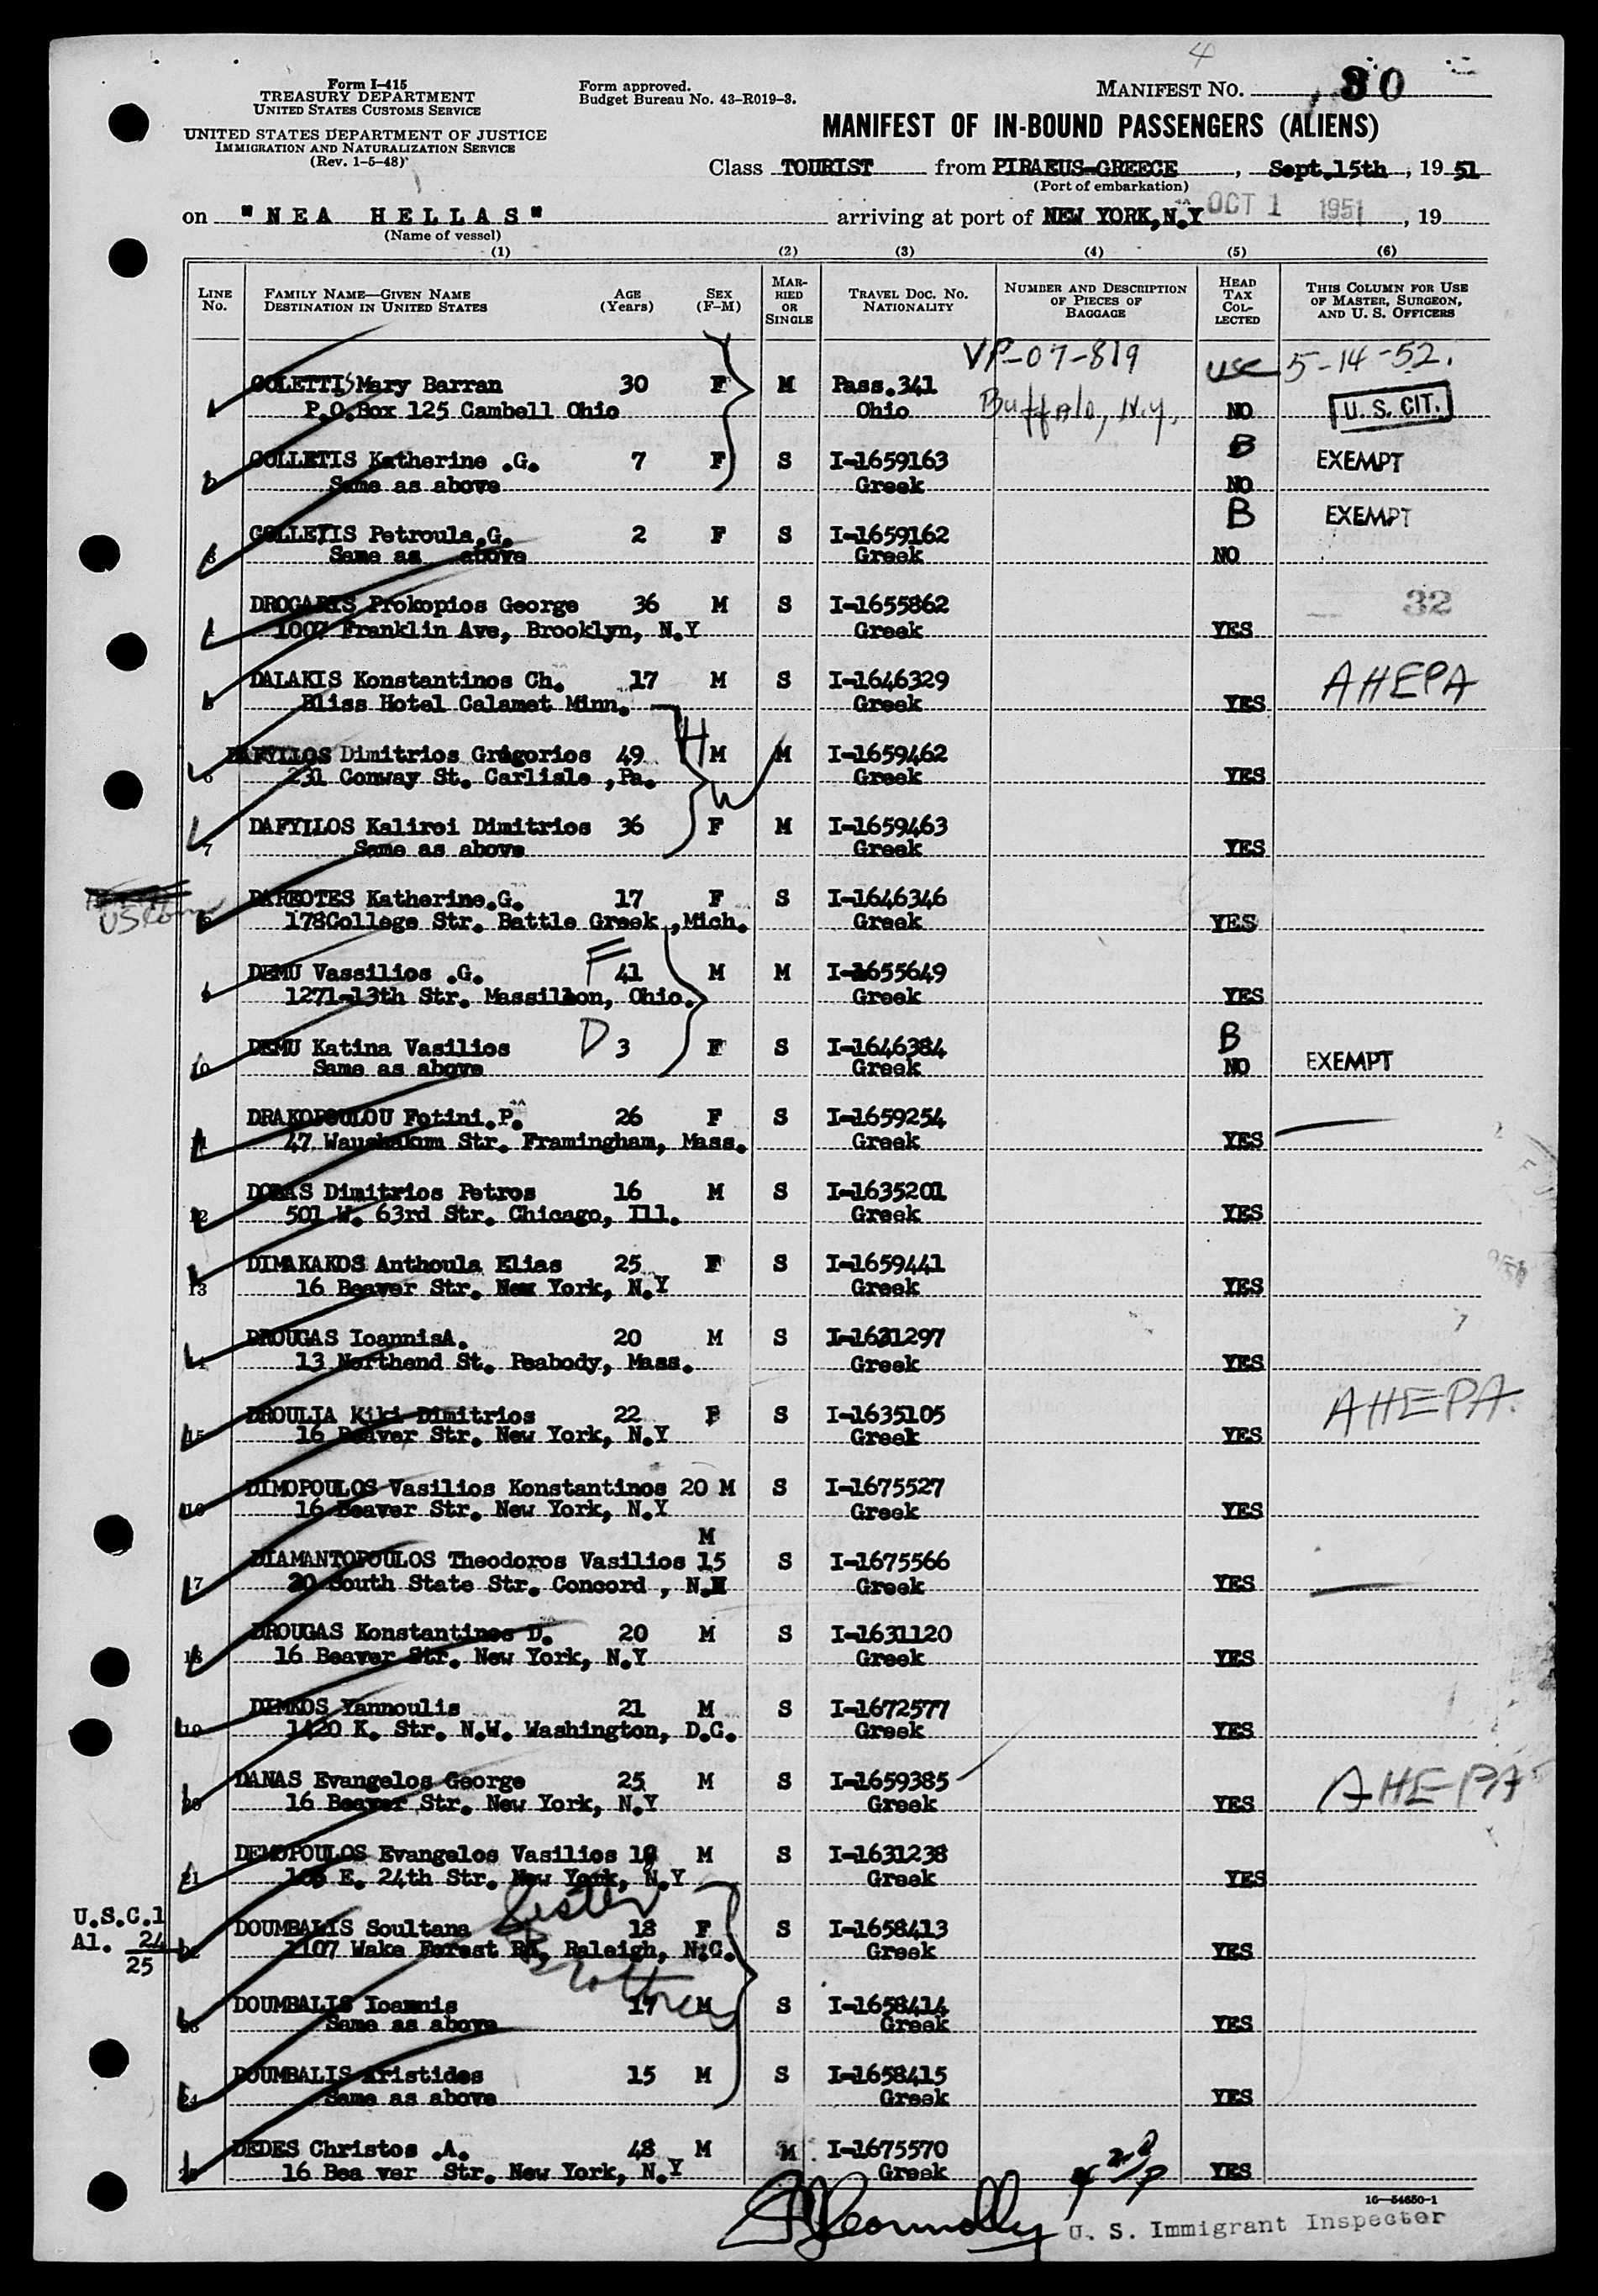 4
Form I-415
TREASURY DEPARTMENT
UNITED STATES CUSTOMS SERVICE
UNITED STATES DEPARTMENT OF JUSTICE
IMMIGRATION AND NATURALIZATION SERVICE
(Rev. 1-5-48)
Form approved.
Budget Bureau No. 43-R019-3.
MANIFEST NO. 30
MANIFEST OF IN-BOUND PASSENGERS (ALIENS)
Class TOURIST from PIRAEUS-GREECE, Sept.15th, 1951
(Port of embarkation)
on "NEA HELLAS" arriving at port of NEW YORK,N.Y OCT 1 1951, 19
(Name of vessel)
(1) (2) (3) (4) (5) (6)
LINE No. FAMILY NAME—GIVEN NAME DESTINATION IN UNITED STATES AGE (Years) SEX (F-M) MARRIED OR SINGLE TRAVEL DOC. NO. NATIONALITY NUMBER AND DESCRIPTION OF PIECES OF BAGGAGE HEAD TAX COLLECTED THIS COLUMN FOR USE OF MASTER, SURGEON, AND U. S. OFFICERS
VP-07-819 USC 5-14-52.
COLETTIS Mary Barran 30 F M Pass.341
P.O.Box 125 Cambell Ohio Ohio Buffalo, N.Y. NO U. S. CIT.
2 COLLETIS Katherine .G. 7 F S I-1659163 B EXEMPT
Same as above Greek NO
3 COLLETIS Petroula.G. 2 F S I-1659162 B EXEMPT
Same as above Greek NO
DROGARIS Prokopios George 36 M S I-1655862 32
1007 Franklin Ave, Brooklyn, N.Y Greek YES
5 DALAKIS Konstantinos Ch. 17 M S I-1646329 AHEPA
Bliss Hotel Calamet Minn. Greek YES
6 DAFYLLOS Dimitrios Grigorios 49 H M M I-1659462
231 Conway St. Carlisle ,Pa. W Greek YES
7 DAFYLLOS Kalirei Dimitrios 36 F M I-1659463
Same as above Greek YES
DAREOTES Katherine.G. 17 F S I-1646346
178College Str. Battle Greek ,Mich. Greek YES
9 DEMU Vassilios .G. F 41 M M I-1655649
1271-13th Str. Massillon, Ohio. Greek YES
10 DEMU Katina Vasilios D 3 F S I-1646384 B
Same as above Greek NO EXEMPT
11 DRAKOPOULOU Fotini.P. 26 F S I-1659254
47 Waushakum Str. Framingham, Mass. Greek YES
12 DOBAS Dimitrios Petros 16 M S I-1635201
501 W. 63rd Str. Chicago, Ill. Greek YES
13 DIMAKAKOS Anthoula Elias 25 F S I-1659441
16 Beaver Str. New York, N.Y Greek YES
DROUGAS IoannisA. 20 M S I-1631297
13 Northend St. Peabody, Mass. Greek YES
15 DROULIA Kiki Dimitrios 22 F S I-1635105 AHEPA.
16 Beaver Str. New York, N.Y Greek YES
16 DIMOPOULOS Vasilios Konstantinos 20 M S I-1675527
16 Beaver Str. New York, N.Y Greek YES
M
17 DIAMANTOPOULOS Theodoros Vasilios 15 S I-1675566
20 South State Str. Concord , N.H Greek YES
18 DROUGAS Konstantinos D. 20 M S I-1631120
16 Beaver Str. New York, N.Y Greek YES
19 DIMKOS Yannoulis 21 M S I-1672577
1420 K. Str. N.W. Washington, D.C. Greek YES
20 DANAS Evangelos George 25 M S I-1659385 AHEPA
16 Beaver Str. New York, N.Y Greek YES
21 DEMOPOULOS Evangelos Vasilios 18 M S I-1631238
E. 24th Str. New York, N.Y Greek YES
U.S.C.1
Al. 24
25
Sister
DOUMBALIS Soultana 18 F S I-1658413
1107 Wake Forest Rd, Raleigh, N.C. Greek YES
Brothers
DOUMBALIS Ioannis 17 M S I-1658414
Same as above Greek YES
DOUMBALIS Aristides 15 M S I-1658415
Same as above Greek YES
DEDES Christos .A. 48 M M I-1675570
16 Bea ver Str. New York, N.Y Greek YES
16—54650-1
Connolly U. S. Immigrant Inspector